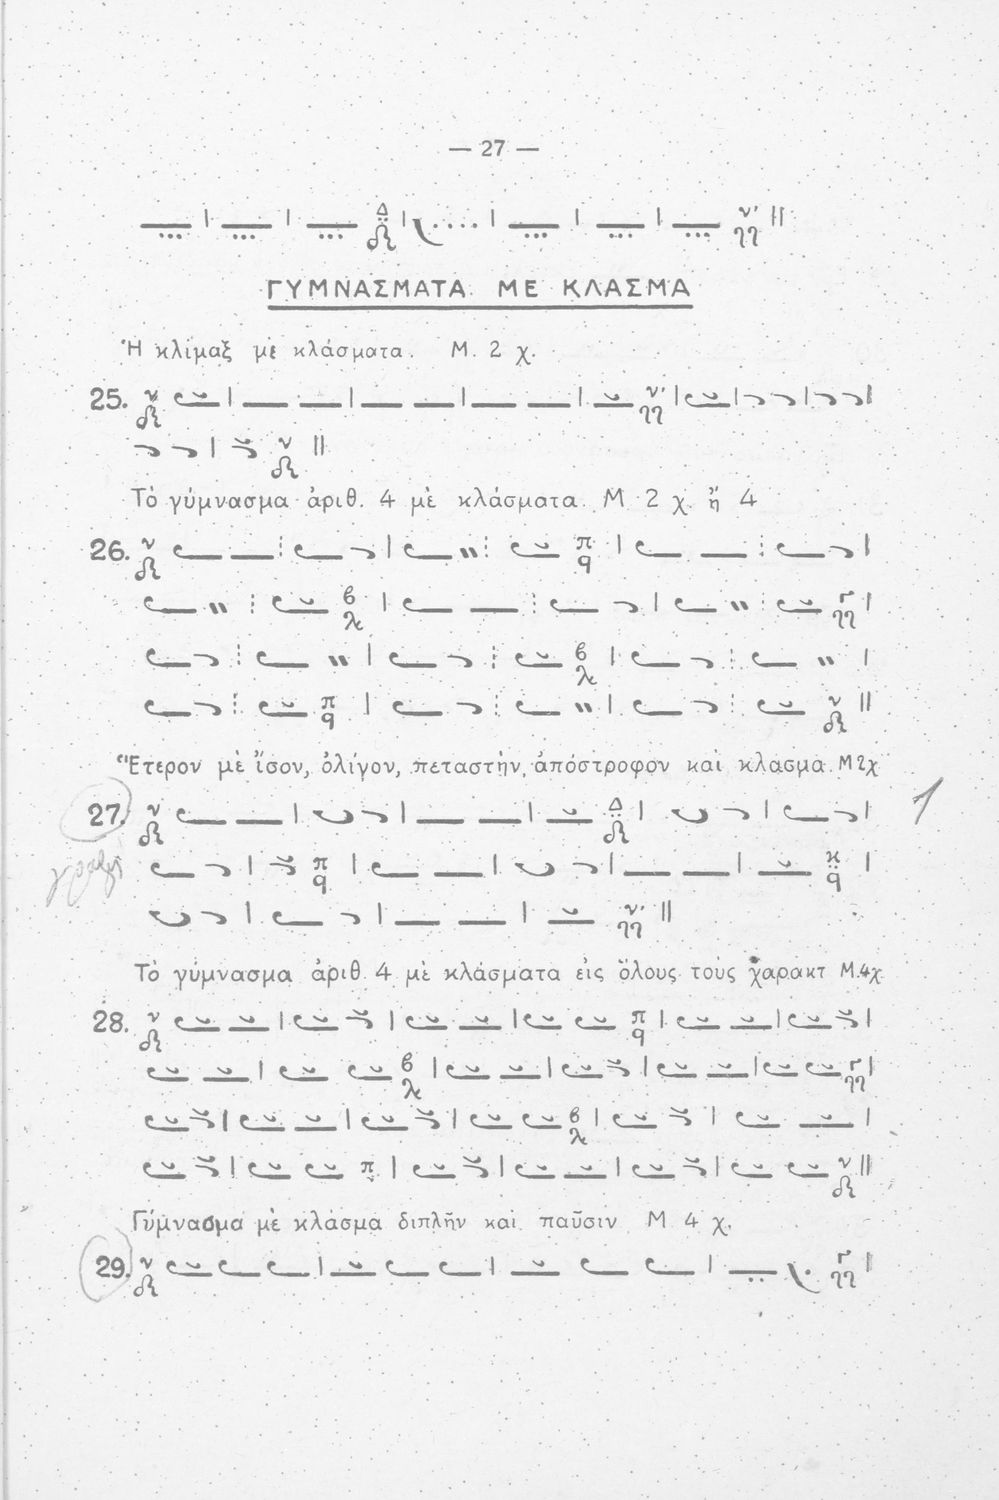 — 27 —
ΓΥΜΝΑΣΜΑΤΑ ΜΕ ΚΛΑΣΜΑ
Ἡ κλίμαξ μὲ κλάσματα. Μ. 2 χ.
25.
Τὸ γύμνασμα ἀριθ. 4 μὲ κλάσματα. Μ 2 χ. ἤ 4
26.
Ἕτερον μὲ ἴσον, ὀλίγον, πεταστὴν, ἀπόστροφον καὶ κλασμα. Μ2χ
27.
Τὸ γύμνασμα ἀριθ. 4 μὲ κλάσματα εἰς ὅλους τοὺς χαρακτ Μ.4χ
28.
Γύμνασμα μὲ κλάσμα διπλῆν καὶ παῦσιν Μ 4 χ.
29.